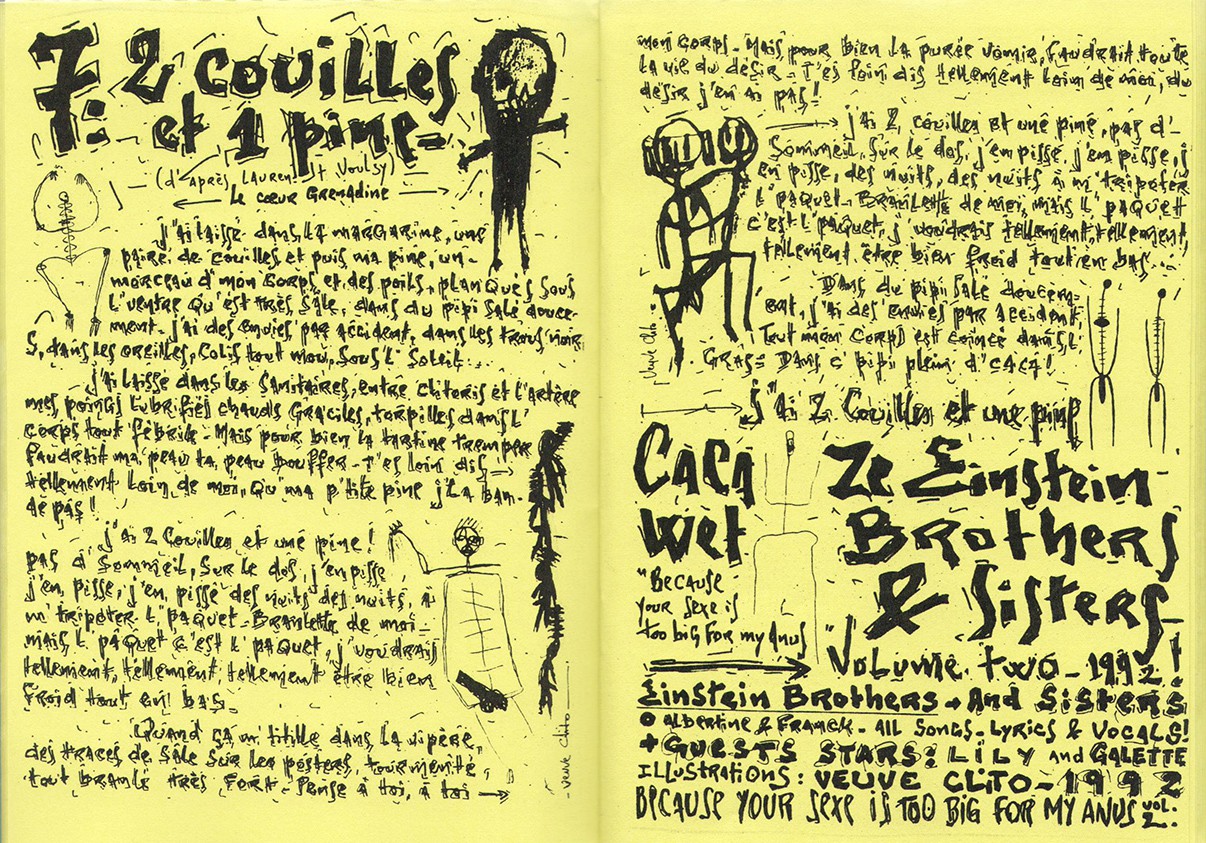 7: 2 couilles
et 1 pine=
(d'après Laurent Voulsy)
Le cœur Grenadine
j'ai laissé dans la margarine, une
paire de couilles et puis ma pine, un
morceau d'mon corps et des poils, planqués sous
l'ventre qu'est très sale, dans du pipi salé douce-
ment. j'ai des envies par accident, dans les trous noir
s, dans les oreilles, colis tout mou, sous l'soleil.
j'ai laissé dans les sanitaires, entre clitoris et l'artère
mes poings lubrifiés chauds graciles, torpilles dans l'
corps tout fébrile - Mais pour bien la tartine tremper
faudrait ma peau ta peau bouffer - T'es loin dis
tellement loin de moi, qu'ma p'tite pine j'la ban-
de pas!
j'ai 2 couilles et une pine!
pas d'sommeil, sur le dos, j'en pisse
j'en pisse, j'en pisse des nuits des nuits, à
m'tripoter l'paquet - Branlette de moi -
mais l'paquet c'est l'paquet, j'voudrais
tellement, tellement, tellement être bien
froid tout en bas -
Quand ça m'titille dans la vipère,
des traces de sale sur les posters, tourmenté,
tout branlé très fort - Pense à toi, à toi
- Veuve Clito -
mon corps - Mais pour bien la purée vomir, faudrait toute
la vie du désir - T'es loin dis tellement loin de moi, du
désir j'en ai pas!
j'ai 2 couilles et une pine, pas d'-
sommeil, sur le dos, j'en pisse, j'en pisse, j
en pisse, des nuits, des nuits à m'tripoter
l'paquet - Branlette de moi, mais l'paquet
c'est l'paquet, j'voudrais tellement, tellement,
tellement être bien froid tout en bas...
Dans du pipi salé doucem-
ent, j'ai des envies par accident,
Tout mon corps est coincé dans l'
gras= Dans c'pipi plein d'caca!
Veuve Clito -
j'ai 2 couilles et une pine
CACA
WET
"Because
your sexe is
too big for my anus"
Ze Einstein
Brothers
& Sisters
Volume two - 1992!
Einstein Brothers - And Sisters
o Albertine & Franck - All songs - Lyrics & Vocals!
+ GUESTS STARS: LILY and GALETTE
ILLUSTRATIONS: VEUVE CLITO - 1992
BECAUSE YOUR SEXE IS TOO BIG FOR MY ANUS VOL: 2.